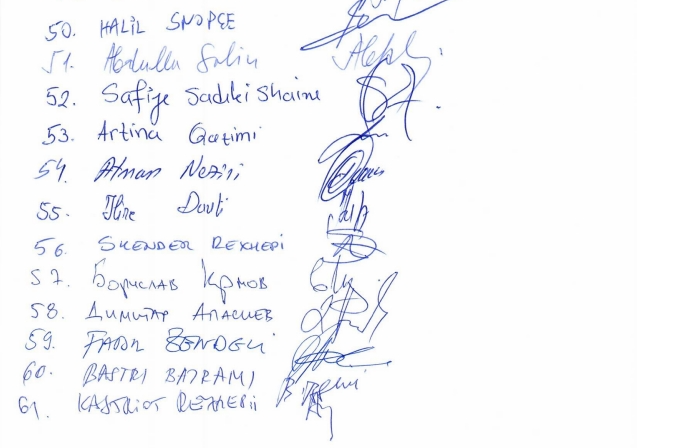 50. HALIL SNOPÇE
51. Abdulla Saliu
52. Safije Sadiki Shaini
53. Artina Qazimi
54. Atnan Neziri
55. Ilire Dauti
56. SKENDER REXHEPI
57. Борислав Крмов
58. ДИМИТАР АПАСИЕВ
59. FADIL ZENDELI
60. BASTRI BAJRAMI
61. KASTRIOT REXHEPI